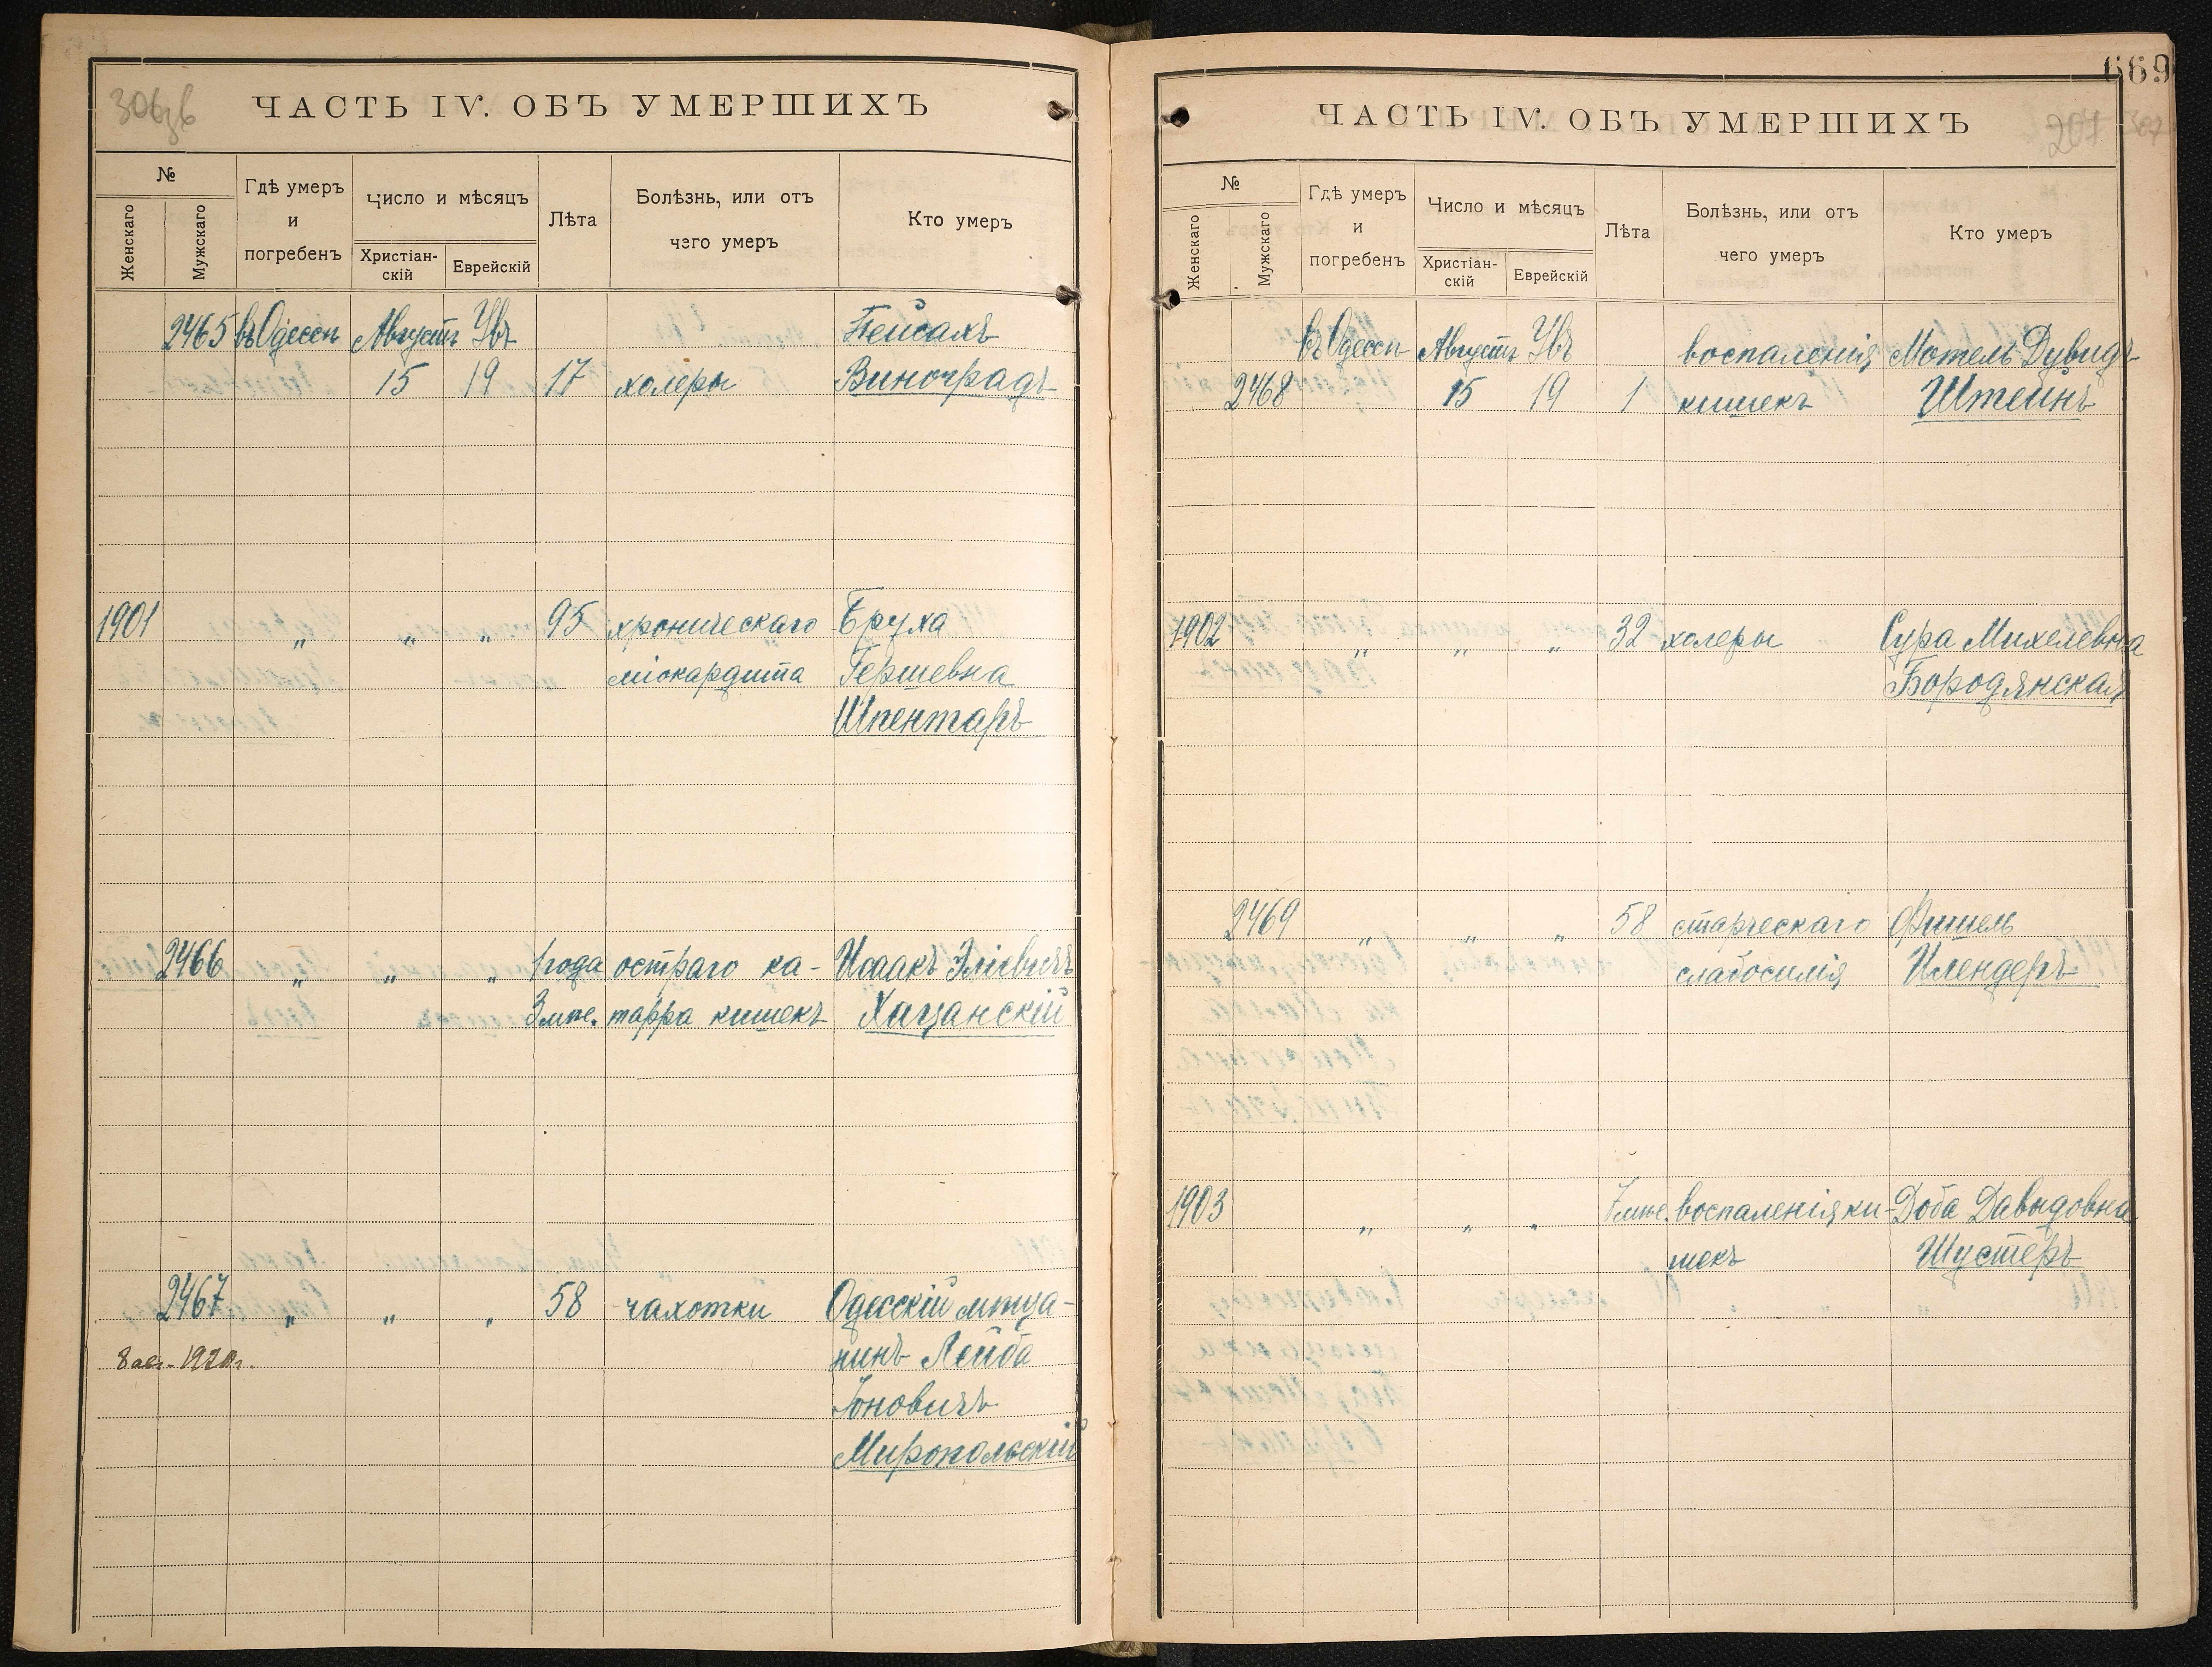 306зв
ЧАСТЬ IV. ОБЪ УМЕРШИХЪ
№
Женскаго
Мужскаго
Гдѣ умеръ
и
погребенъ
Число и мѣсяцъ
Христіан-
скій
Еврейскій
Лѣта
Болѣзнь, или отъ
чего умеръ
Кто умеръ
2465 въ Одессѣ Августъ Увъ Пейсахъ
15 19 17 холеры Виноградъ
1901 „ „ „ 95 хроническаго Бруха
міокардита Гершевна
Шпентаръ
2466 „ „ „ 1 года остраго ка- Исаакъ Эліевичъ
3 мѣс. тарра кишекъ Хацанскій
2467 „ „ „ 58 чахотки Одесскій мѣща-
8 авг. 1920 г. нинъ Лейба
Іоновичъ
Миропольскій
669
ЧАСТЬ IV. ОБЪ УМЕРШИХЪ
207 307
№
Женскаго
Мужскаго
Гдѣ умеръ
и
погребенъ
Число и мѣсяцъ
Христіан-
скій
Еврейскій
Лѣта
Болѣзнь, или отъ
чего умеръ
Кто умеръ
въ Одессѣ Августъ Увъ воспаленія Мотель Дувидъ
2468 15 19 1 кишекъ Штейнъ
1902 „ „ „ 32 холеры Сура Михелевна
Бородянская
2469 „ „ „ 58 старческаго Фишель
слабосилія Илендеръ
1903 „ „ „ 7 мѣс. воспаленія ки- Доба Давыдовна
шекъ Шустеръ